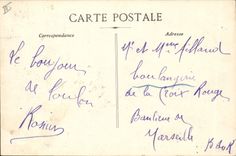 CARTE POSTALE
Correspondance
Adresse
Le bonjour
de Toulon
Mr et Mme Milland
boulangerie
de la Croix Rouge
Banlieue de
Marseille
B du R